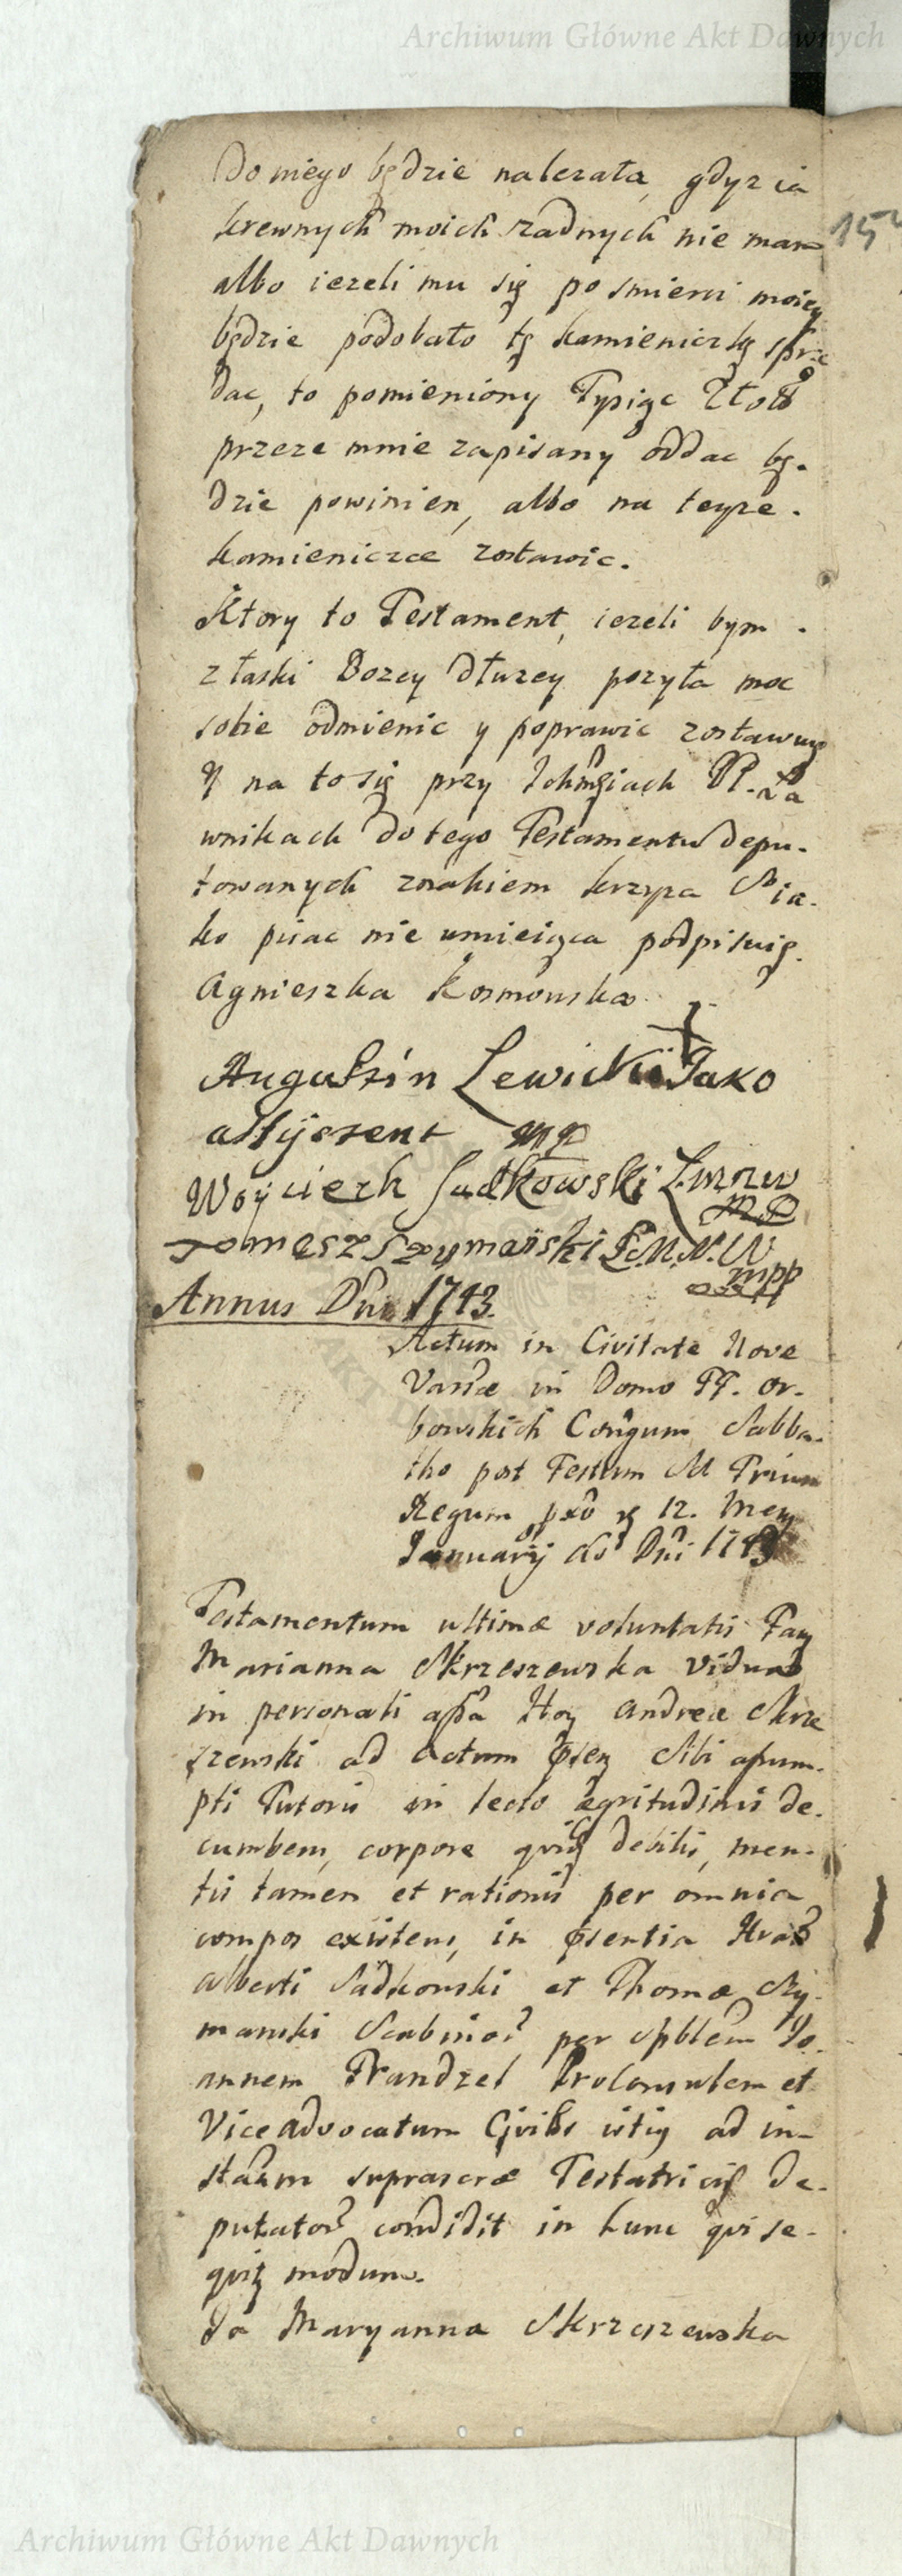 Archiwum Główne Akt Dawnych
Do niego będzie nalezała, gdyz ia
krewnych moich zadnych nie mam
albo iezeli mu się po smierci moiey
będzie podobało tę kamieniczkę sprze
dac, to pomieniony Tysiąc Złot
przeze mnie zapisany oddac bę-
dzie powinien, albo na teyze
kamieniczce zostawic.
Ktory to Testament, iezeli bym
z łaski Bozey dłuzey pozyła moc
sobie odmienic y poprawic zostawuię
Y na to się przy Ichmciach PP. Ła
wnikach do tego Testamentu depu-
towanych znakiem krzyza S ia-
ko pisac nie umieiąca podpisuię.
Agnieszka Kosmowska
Augustin Lewicki Jako
assÿstent mp
Woyciech Sadkowski
Tomesz Szymański Ł.M.N.W
mpp
Annus Dni 1743.
Actum in Civitate Nova
Varsã in Domo FF. Or-
bowskich Conjgum Sabba-
tho post Festum SS Trium
Regum pxõ 12. Mens
Januarij Dni 1743
Testamentum ultimæ voluntatis Fam
Marianna Skrzeszewska vidua
in personali assã Hon Andreæ Skrze
szewski ad Actum pñsen Sibi assum-
pti Tutoris in lecto ægritudinis de-
cumbens, corpore quid debilis, men-
tis tamen et rationis per omnia
compos existens, in pñsentia Hrab
Alberti Sadkowski et Thomæ Szy-
manski Scabinor per Spblem Jo-
annem Frandzel Proconsulem et
Viceadvocatum Civits istius ad in-
stãam suprascræ Testatricis de-
putator condidit in hunc qui se-
quit modum.
Ja Maryanna Skrzeszewska
Archiwum Główne Akt Dawnych